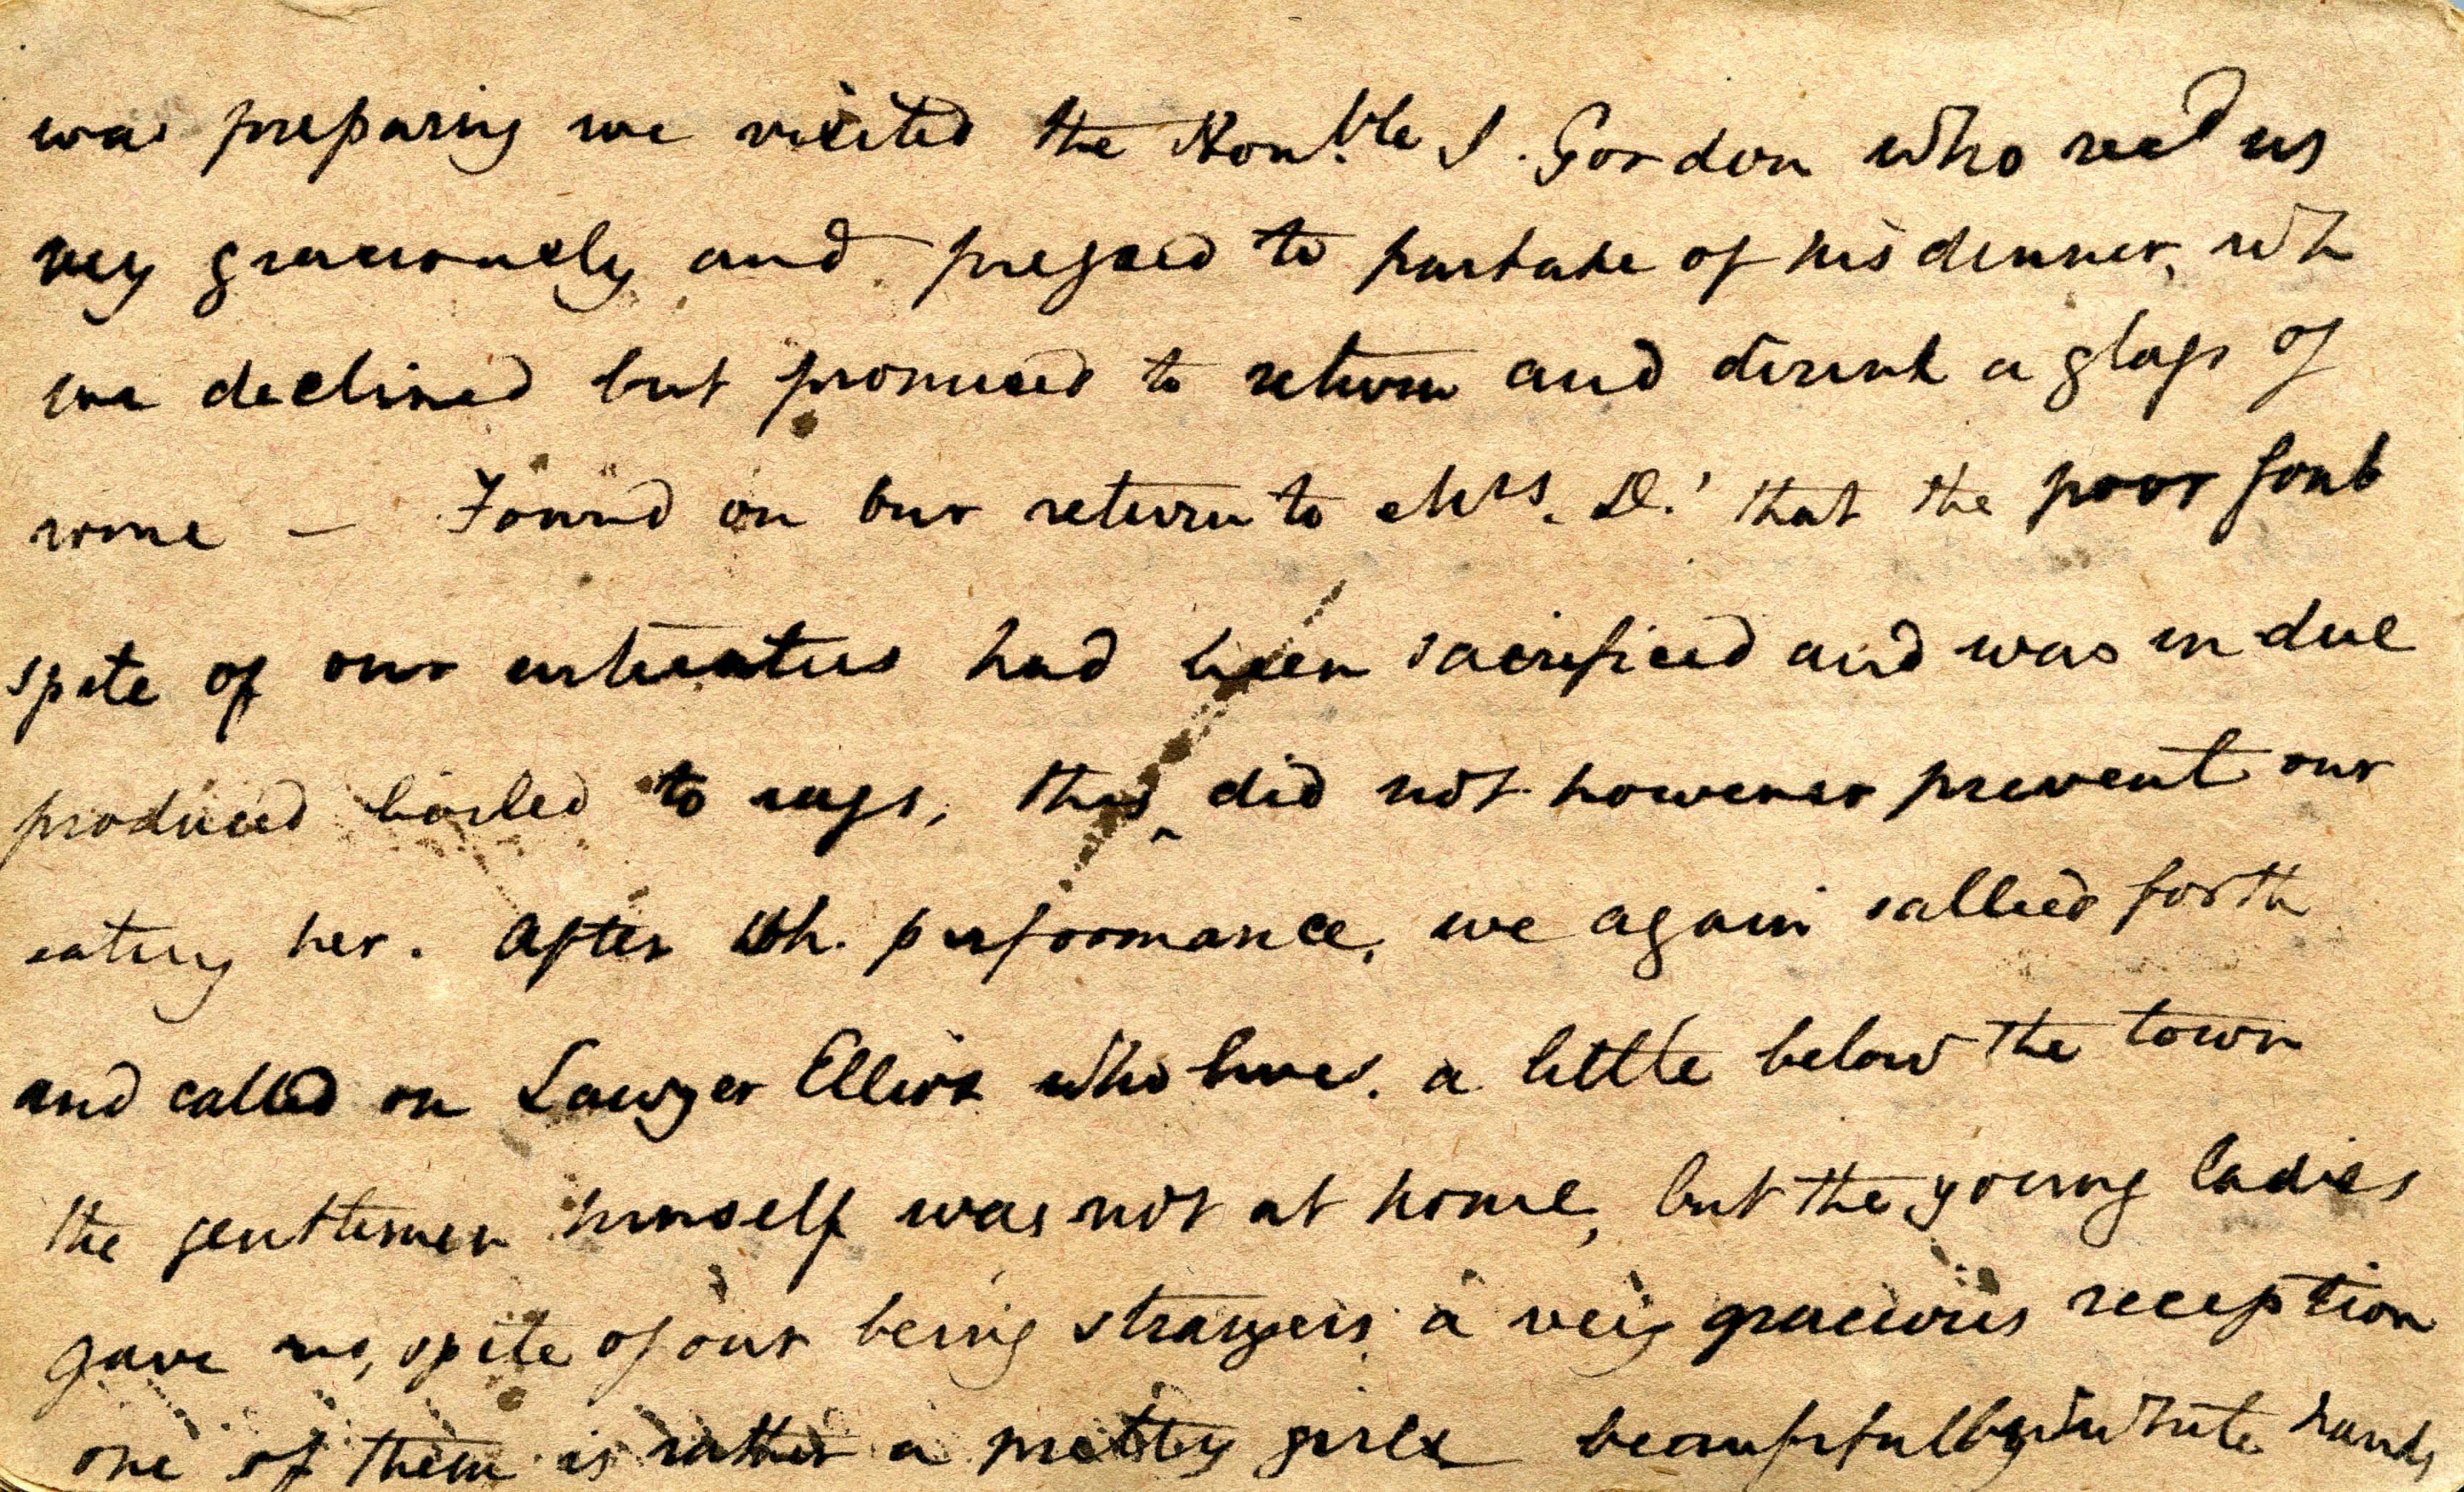 was preparing we visited the Honble J. Gordon who recd us
very graciously and pressed to partake of his dinner, wh
we declined but promised to return and drink a glass of
wine — Found on our return to Mrs. D.' that the poor
spite of our entreaties had been sacrificed and was in due
produced boiled to rags, this did not however prevent our
eating her. After wh. performance, we again sallied forth
and called on Lawyer Elliot who lives. a little below the town
the gentlemen himself was not at home, but the young ladies
gave us, spite of our being strangers a very gracious reception
one of them is rather a pretty girl white hands